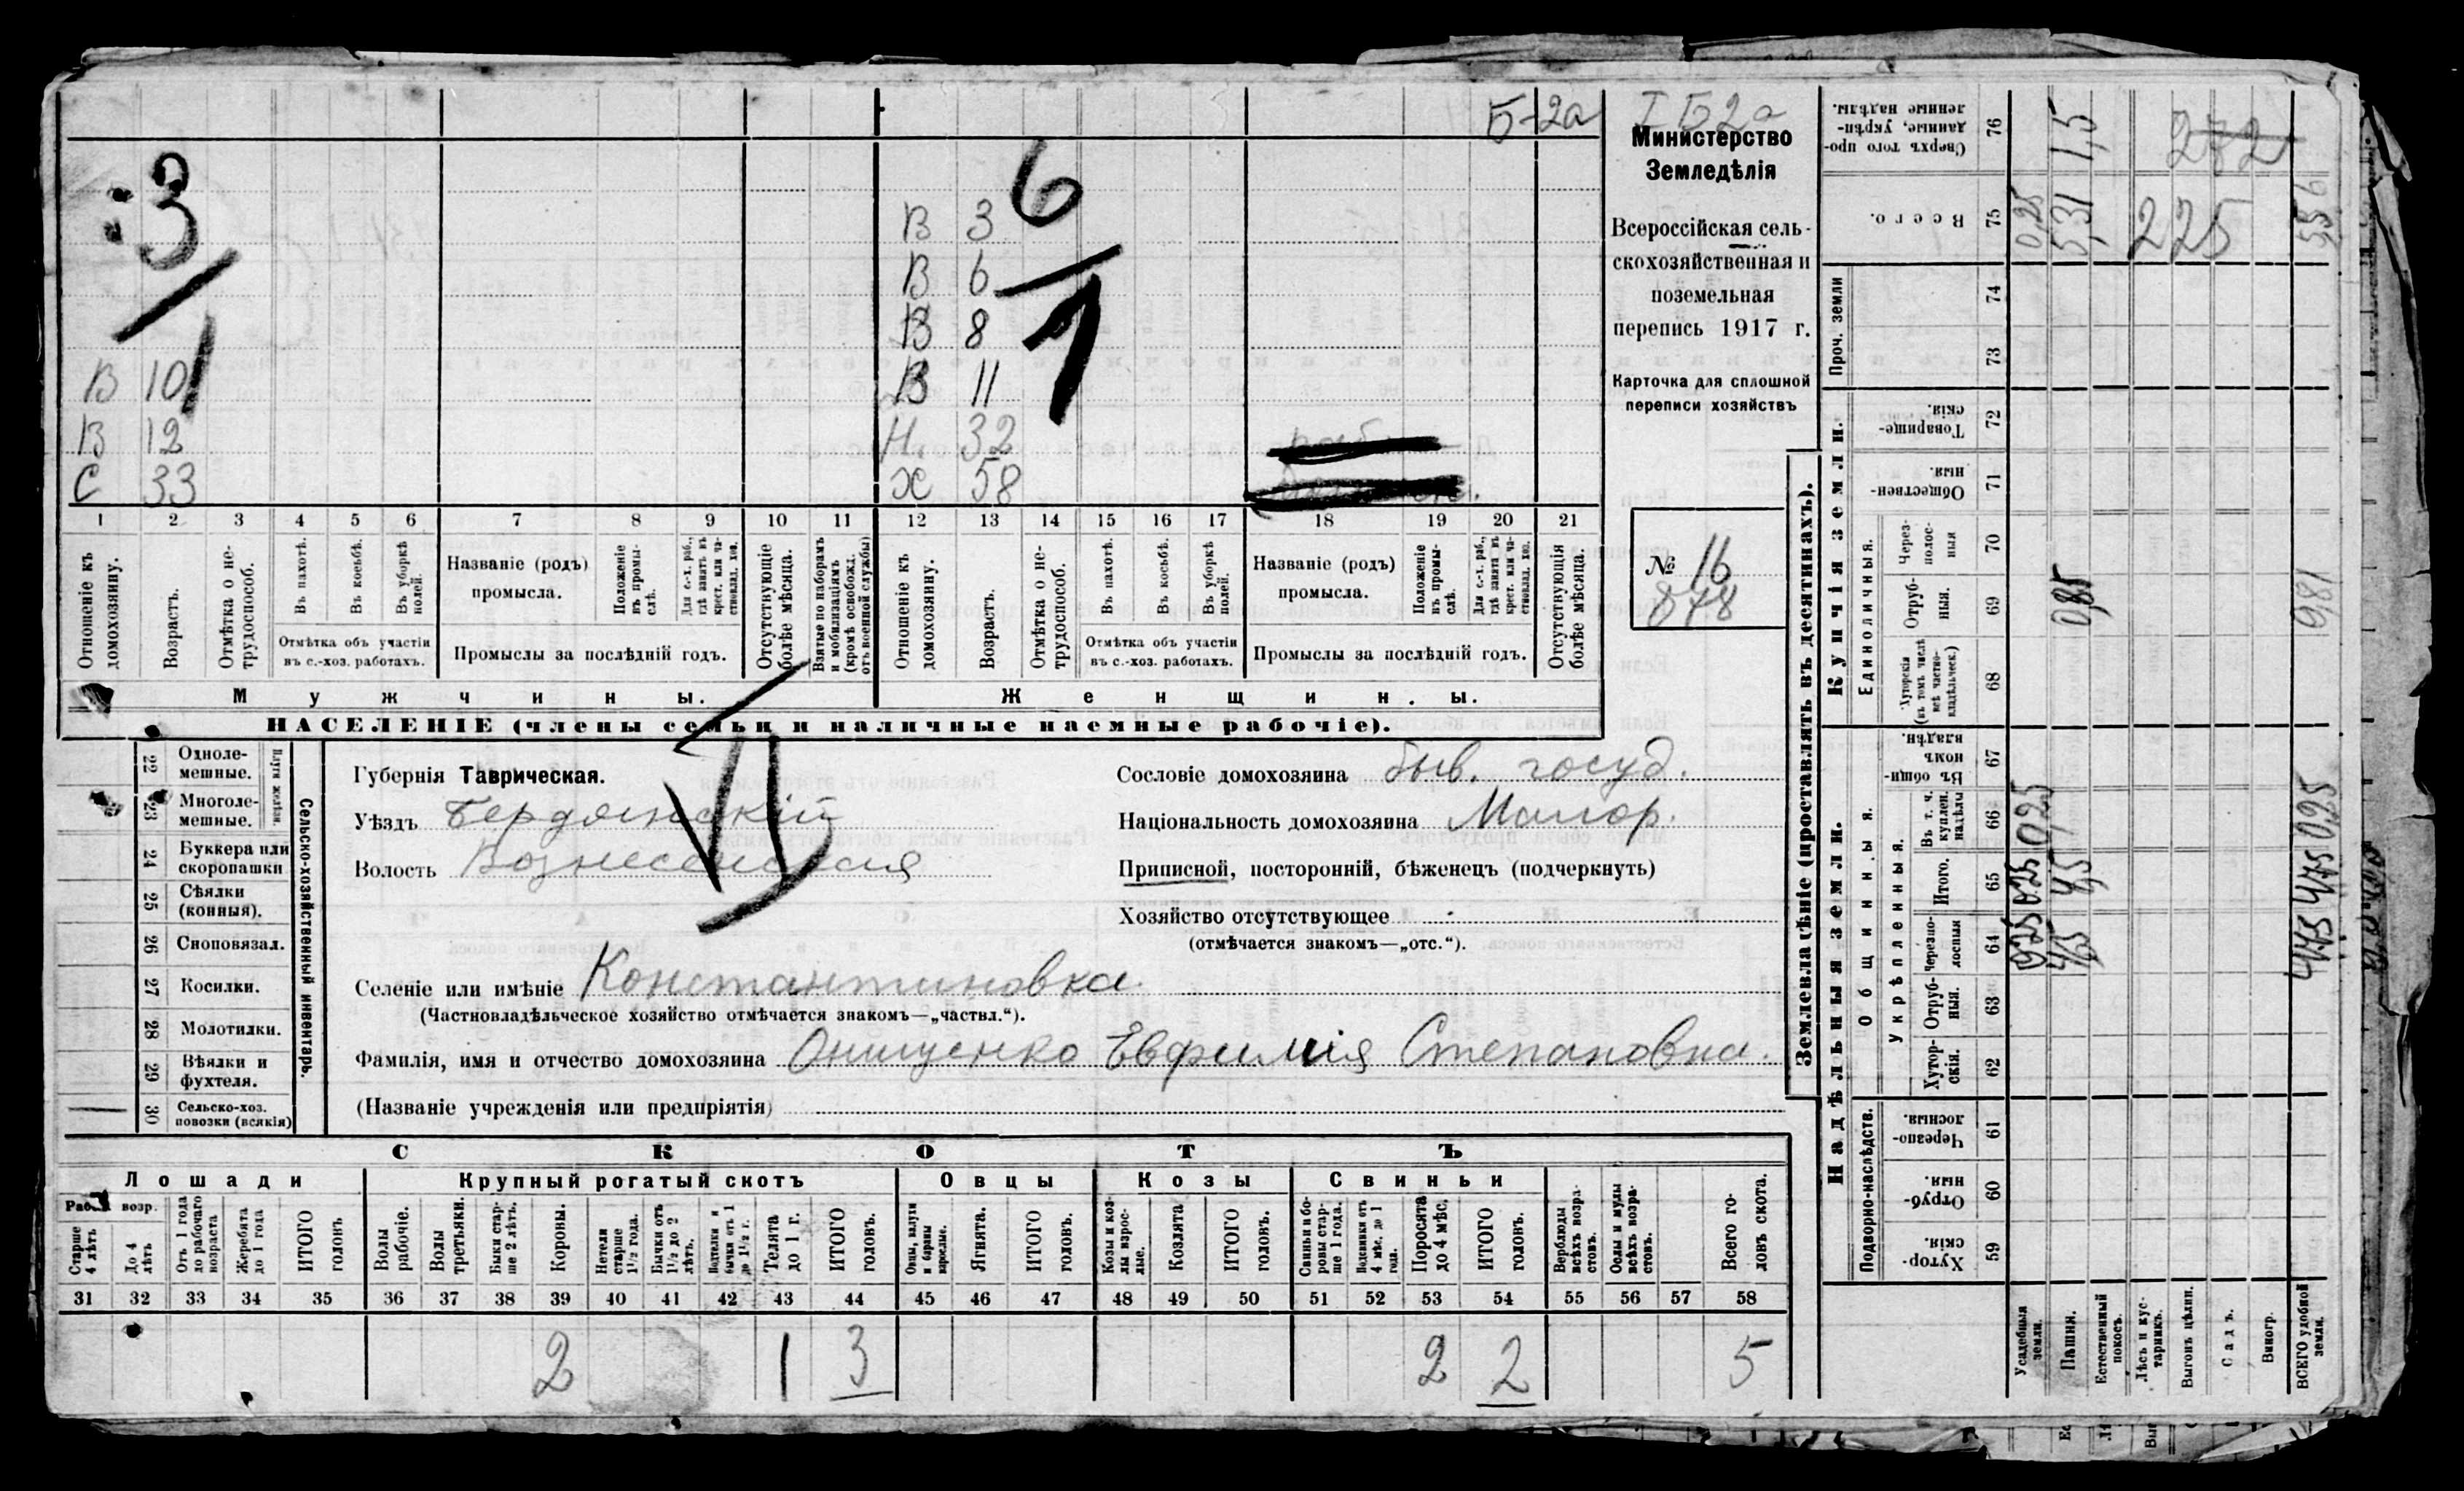 Б-2а
І Б2а
Министерство
Земледѣлія
Всероссійская сель-
скохозяйственная и
поземельная
перепись 1917 г.
Карточка для сплошной
переписи хозяйствъ
№ 16
878
3
1
6
1
В 3
В 6
В 8
В 10 В 11
В 12 Н. 32
С 33 Х 58
1 2 3 4 5 6 7 8 9 10 11 12 13 14 15 16 17 18 19 20 21
Отношеніе къ домохозяину.
Возрастъ.
Отмѣтка о нетрудоспособ.
Въ пахотѣ.
Въ косьбѣ.
Въ уборкѣ полей.
Отмѣтка объ участіи
въ с.-хоз. работахъ.
Названіе (родъ)
промысла.
Положеніе въ промыслѣ.
Для с.-х. раб., гдѣ занятъ въ крест. или частновлад. хоз.
Промыслы за послѣдній годъ.
Отсутствующіе болѣе мѣсяца.
Взятые по наборамъ и мобилизаціямъ (кромѣ освобожд. отъ военной службы)
Отношеніе къ домохозяину.
Возрастъ.
Отмѣтка о нетрудоспособ.
Въ пахотѣ.
Въ косьбѣ.
Въ уборкѣ полей.
Отмѣтка объ участіи
въ с.-хоз. работахъ.
Названіе (родъ)
промысла.
Положеніе въ промыслѣ.
Для с.-х. раб., гдѣ занята въ крест. или частновлад. хоз.
Промыслы за послѣдній годъ.
Отсутствующія болѣе мѣсяца.
Мужчины.
Женщины.
НАСЕЛЕНІЕ (члены семьи и наличные наемные рабочіе).
22 Одноле-
мешные.
23 Многоле-
мешные.
Плуги желѣзн.
24 Буккера или
скоропашки
25 Сѣялки
(конныя).
26 Сноповязал.
27 Косилки.
28 Молотилки.
29 Вѣялки и
фухтеля.
30 Сельско-хоз.
повозки (всякія)
Сельско-хозяйственный инвентарь.
Губернія Таврическая.
Уѣздъ Бердянскій
Волость Вознесенская
Сословіе домохозяина быв. госуд.
Національность домохозяина Малор.
Приписной, посторонній, бѣженецъ (подчеркнуть)
Хозяйство отсутствующее
(отмѣчается знакомъ—„отс.“).
Селеніе или имѣніе Константиновка
(Частновладѣльческое хозяйство отмѣчается знакомъ—„частвл.“).
Фамилія, имя и отчество домохозяина Онищенко Евфимія Степановна.
(Названіе учрежденія или предпріятія)
СКОТЪ
Лошади
Крупный рогатый скотъ
Овцы
Козы
Свиньи
Рабоч. возр.
Старше 4 лѣтъ
До 4 лѣтъ
Отъ 1 года до рабочаго возраста
Жеребята до 1 года
ИТОГО головъ
Волы рабочіе.
Волы третьяки.
Быки старше 2 лѣтъ.
Коровы.
Нетели старше 1½ года.
Бычки отъ 1½ до 2 лѣтъ.
Подтелки и бычки отъ 1 до 1½ г.
Телята до 1 г.
ИТОГО головъ.
Овцы, валухи и бараны взрослые.
Ягнята.
ИТОГО головъ.
Козы и козлы взрослые.
Козлята
ИТОГО головъ.
Свиньи и боровы старше 1 года.
Подсвинки отъ 4 мѣс. до 1 года.
Поросята до 4 мѣс.
ИТОГО головъ.
Верблюды всѣхъ возрастовъ.
Ослы и мулы всѣхъ возрастовъ.
Всего головъ скота.
31 32 33 34 35 36 37 38 39 40 41 42 43 44 45 46 47 48 49 50 51 52 53 54 55 56 57 58
2 1 3 2 2 5
Землевладѣніе (проставлять въ десятинахъ).
Надѣльныя земли.
Купчія земли.
Проч. земли
Подворно-наслѣдств.
Общинныя.
Укрѣпленныя.
Единоличныя.
Сверхъ того проданные, укрѣпленные надѣлы. 76
Всего. 75
74
73
Товарищескія. 72
Общественныя. 71
Черезполосныя 70
Отрубныя. 69
Хуторскія (въ томъ числѣ всѣ частновладѣльческ.) 68
Въ общинномъ владѣн. 67
Въ т. ч. куплен. надѣлы 66
Итого. 65
Черезполосныя 64
Отрубныя. 63
Хуторскія. 62
Черезполосныя. 61
Отрубныя. 60
Хуторскія. 59
Усадебныя земли.
Пашня.
Естественный покосъ.
Лѣсъ и кустарникъ.
Выгонъ цѣлин.
Садъ.
Виногр.
ВСЕГО удобной земли.
0,25
5,31
1,5
225
272
556
0,85
9,81
0,25
4,5
4,75
0,25